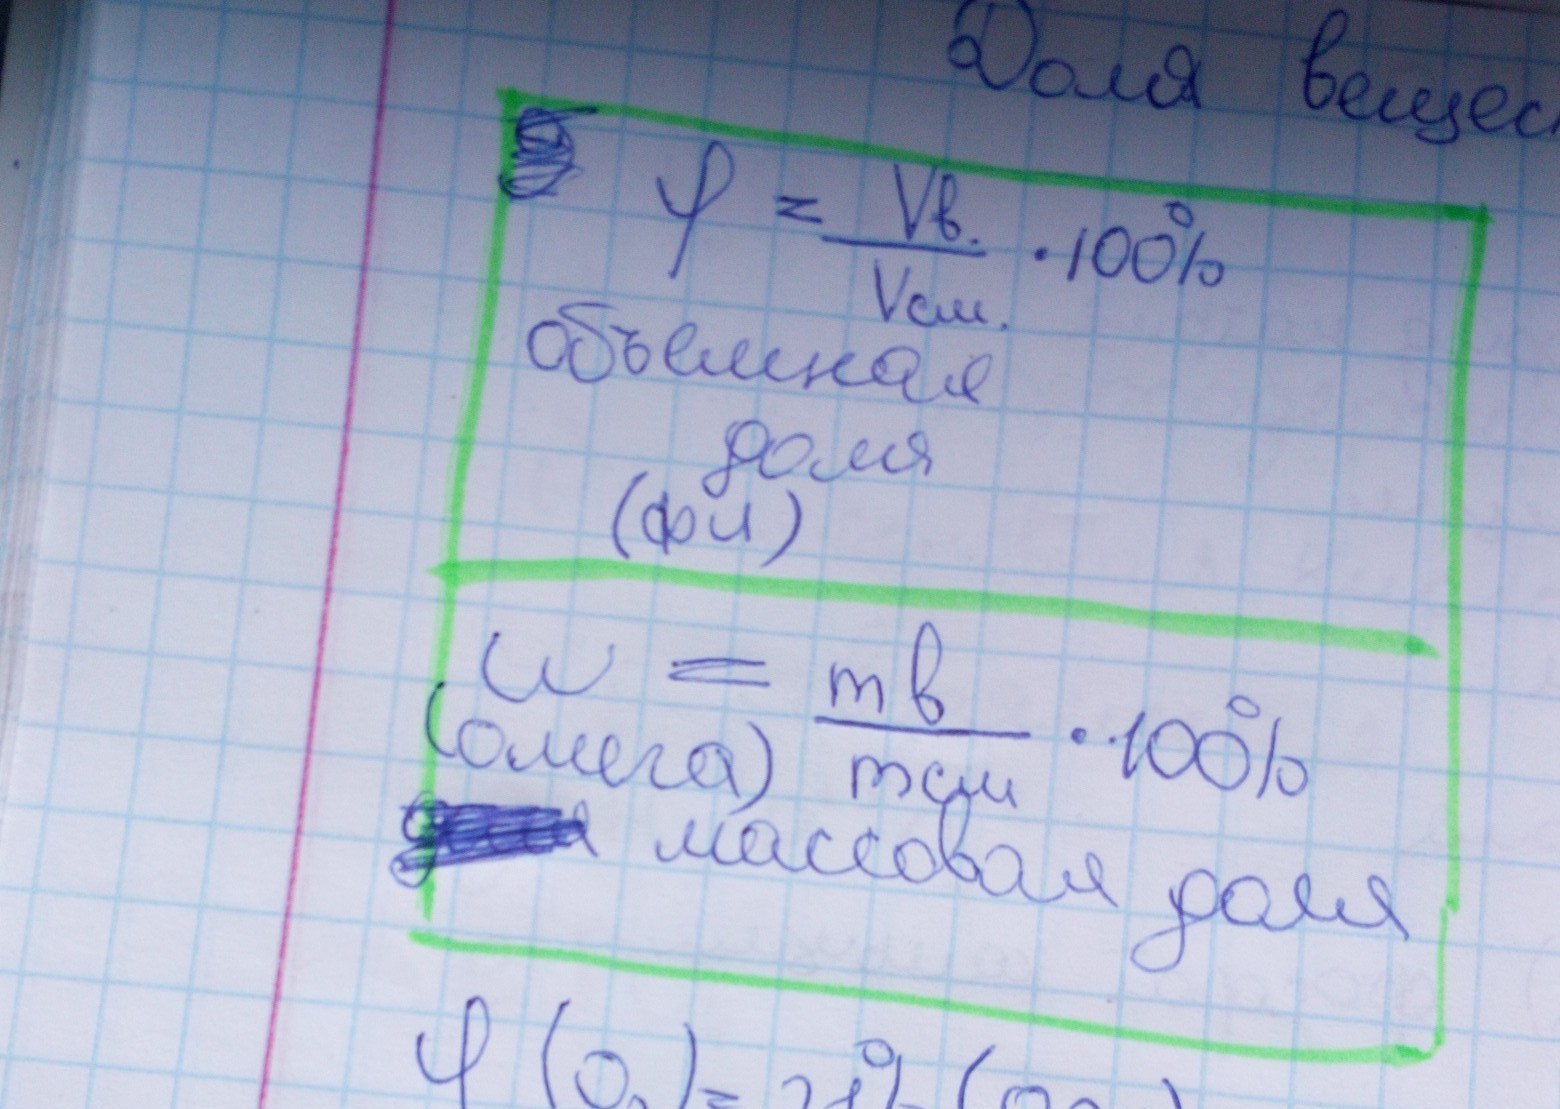 Доля вещес
φ = Vв. / Vсм. · 100%
объемная
доля
(фи)
ω = mв / mсм · 100%
(омега)
массовая доля
φ (O₂) = 21% (0,